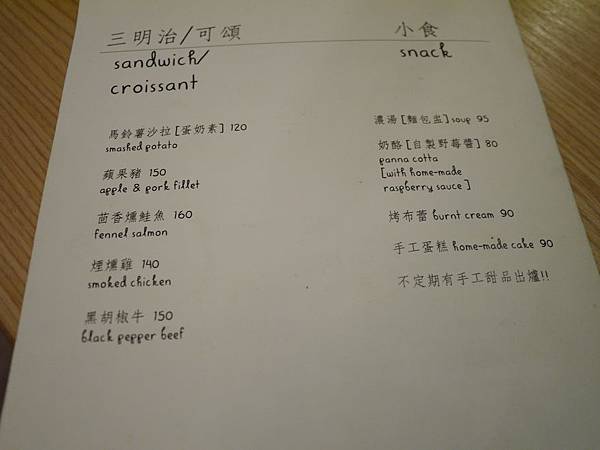 三明治/可頌
sandwich/
croissant
馬鈴薯沙拉[蛋奶素] 120
smashed potato
蘋果豬 150
apple & pork fillet
茴香燻鮭魚 160
fennel salmon
煙燻雞 140
smoked chicken
黑胡椒牛 150
black pepper beef
小食
snack
濃湯[麵包盅]soup 95
奶酪[自製野莓醬]80
panna cotta
[with home-made
raspberry sauce]
烤布蕾 burnt cream 90
手工蛋糕 home-made cake 90
不定期有手工甜品出爐!!